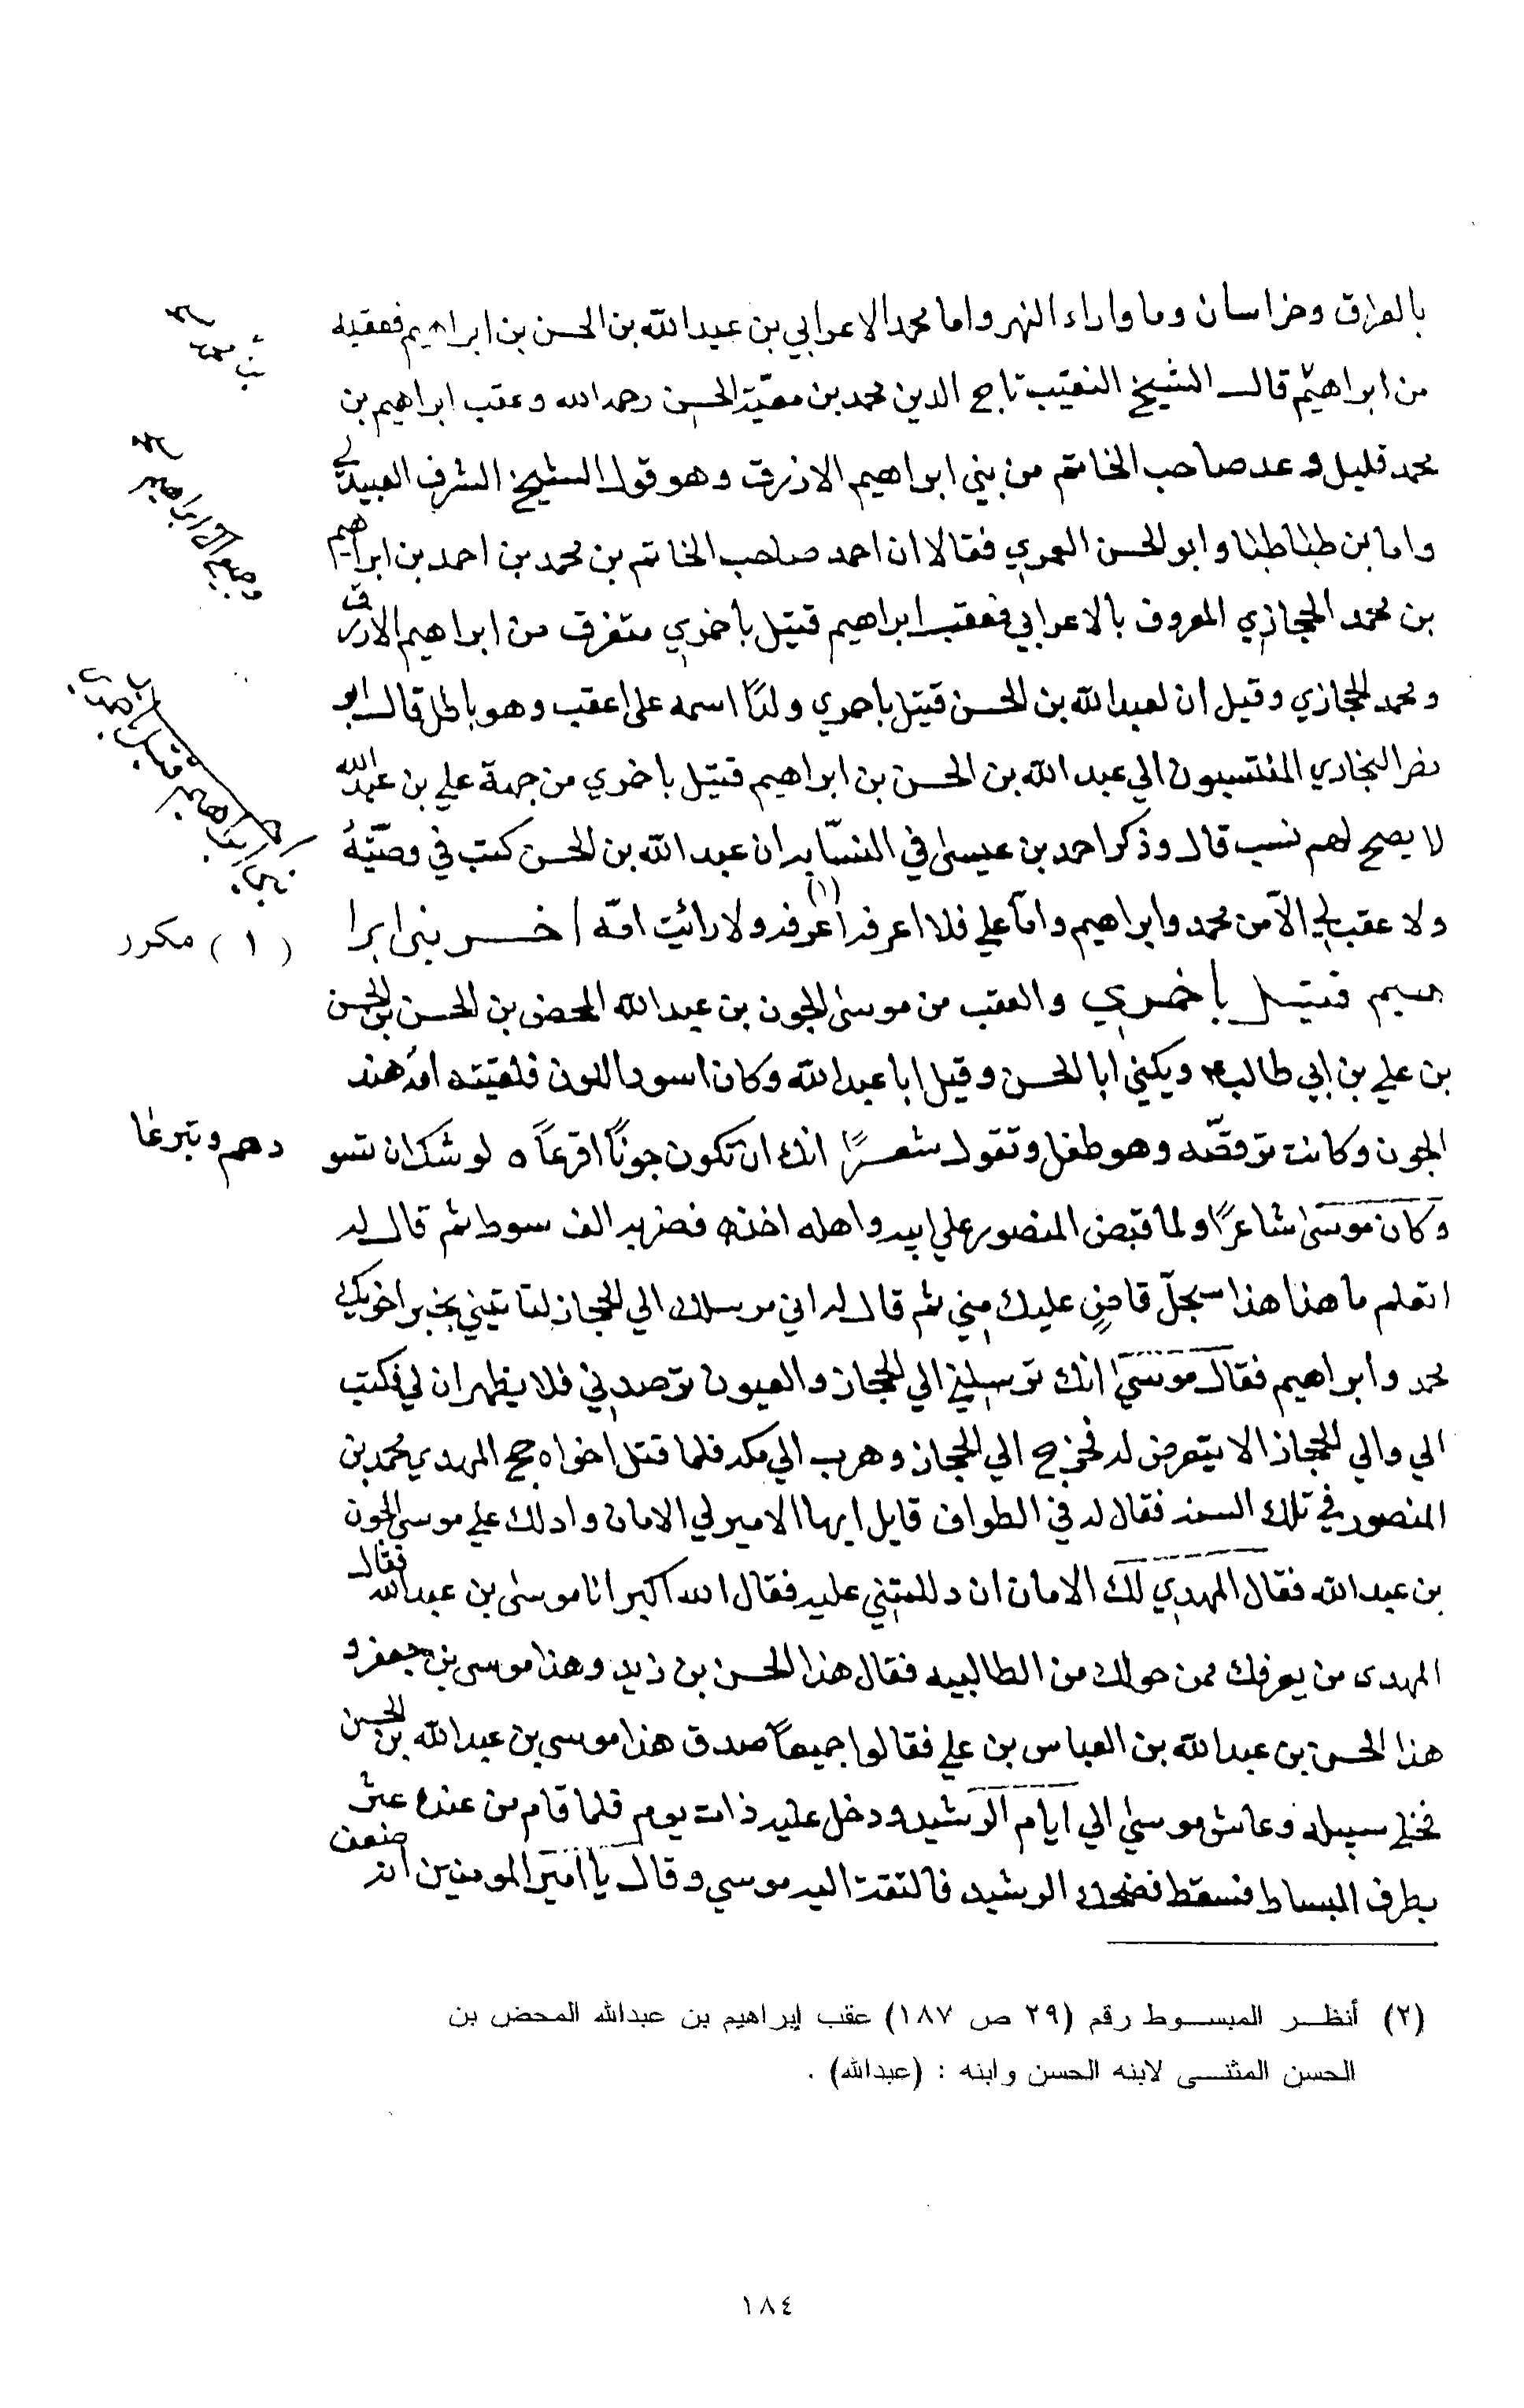 بالعراق وخراسان وما واراء النهر واما محمد الاعرابي بن عبد الله بن الحسن بن ابراهيم فعقبه
من ابراهيم قال الشيخ النقيب تاج الدين محمد بن معيّة الحسن رحمه الله وعقب ابراهيم بن
محمد قليل وعد صاحب الخاتم من بني ابراهيم الازرق وهو قول الشيخ الشرف العبيدلي
واما بن طباطبا وابو الحسن العمري فقالا ان احمد صاحب الخاتم بن محمد بن احمد بن ابراهيم
بن محمد الحجازي المعروف بالاعرابي فعقب ابراهيم قتيل باخمري متفرق من ابراهيم الازرق
ومحمد الحجازي وقيل ان لعبد الله بن الحسن قتيل باحمري ولدًا اسمه على اعقب وهو باطل قال ابو
نصر البخاري المنتسبون الي عبد الله بن الحسن بن ابراهيم قتيل باخمري من جهة علي بن عبد الله
لا يصح لهم نسب قال وذكر احمد بن عيسى في النسّابه ان عبد الله بن الحسن كتب في وصيّته
ولا عقب لي الاّ من محمد وابراهيم وامّا علي فلا اعرفه اعرفه (١) ولا رائيت امّه اخر بني ابرا
هيم قتيل باخمري والعقب من موسى الجون بن عبد الله المحض بن الحسن بن الحسن
بن علي بن ابي طالب ويكني ابا الحسن وقيل ابا عبد الله وكان اسود اللون فلقبته امّه هند
الجون وكانت ترقصّه وهو طفل وتقول شعرًا انك ان تكون جونًا اقرعًا ه لوشك ان تسو دهم وتبرعا
وكان موسى شاعرًا ولما قبض المنصور علي ابيه واهله اخذه فضربه الف سوط ثم قال له
اتعلم ما هذا هذا سجلّ فاض عليك مني ثم قال له اني مرسلك الي الحجاز لتاتيني بخبر اخويك
محمد وابراهيم فقال موسى انك ترسلني الي الحجاز والعيون ترصدني فلا يظهران لي فكتب
الي والي الحجاز الا يتعرض له فخرج الي الحجاز وهرب الي مكه فلما قتل اخواه حج المهدي محمد بن
المنصور في تلك السنه فقال له في الطواف قايل ايها الامير لي الامان وادلك علي موسى الجون
بن عبد الله فقال المهدي لك الامان ان دللتني عليه فقال الله اكبر انا موسى بن عبد الله فقال
المهدى من يعرفك ممن حولك من الطالبيه فقال هذا الحسن بن زيد وهذا موسى بن جعفر و
هذا الحسن بن عبد الله بن العباس بن علي فقالوا جميعًا صدق هذا موسى بن عبد الله بن الحسن
فخلي سبيله وعاش موسى الي ايام الرشيد ودخل عليه ذات يوم فلما قام من عنده عثر
بطرف البساط فسقط فضحك الرشيد فالتفت اليه موسي وقال يا امير المومنين انه ضعف
(١) مكرر
(٢) أنظر المبسوط رقم (٢٩ ص ١٨٧) عقب إبراهيم بن عبدالله المحض بن
الحسن المثنى لابنه الحسن وابنه : (عبدالله) .
١٨٤